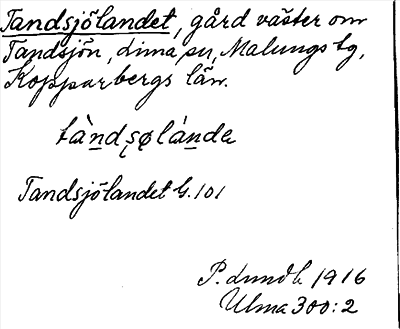 Tandsjölandet, gård väster om
Tandsjön, Lima sn, Malungs tg,
Kopparbergs län.
tàndʂøländɐ
Tandsjölandet G. 101
P. Lundb. 1916
Ulma 300:2